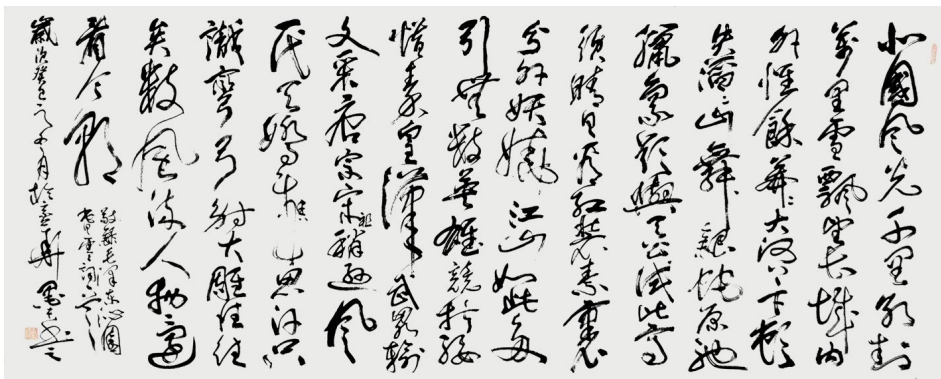 北國風光千里冰封
萬里雪飄望長城內
外惟餘莽莽大河上下頓
失滔滔山舞銀蛇原馳
蠟象欲與天公試比高
須晴日看紅裝素裹
分外妖嬈江山如此多
引無數英雄競折腰
惜秦皇漢武略輸
文采唐宗宋祖稍遜風
一代天驕成吉思汗只
識彎弓射大雕俱往
矣數風流人物還
看今朝
敬錄毛澤東沁園
春雪詞一首
歲次癸巳之五月於